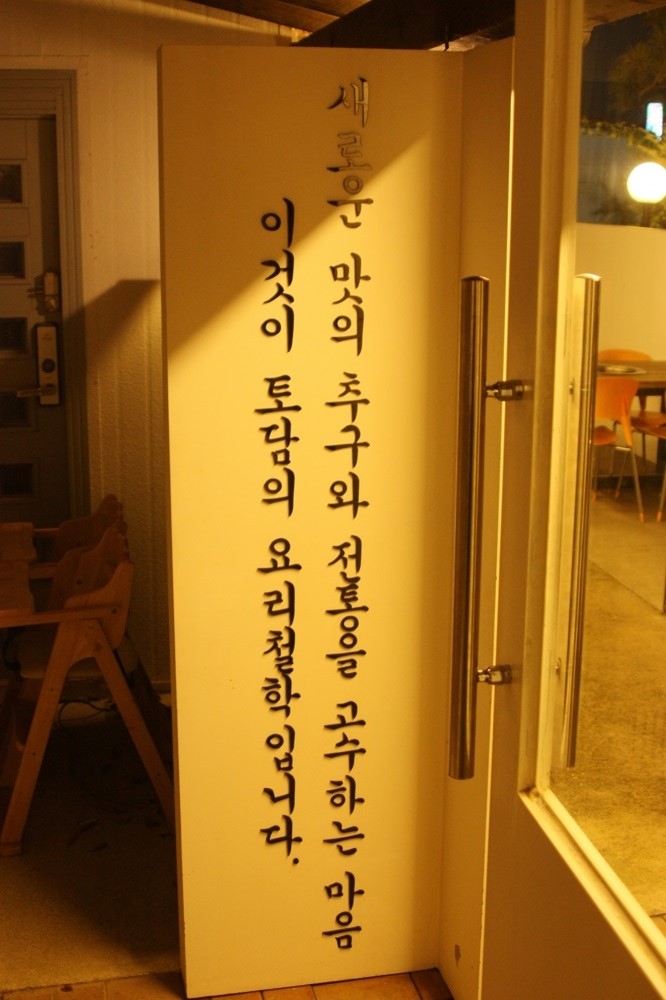 새로운 맛의 추구와 전통을 고수하는 마음
이것이 토담의 요리철학입니다.